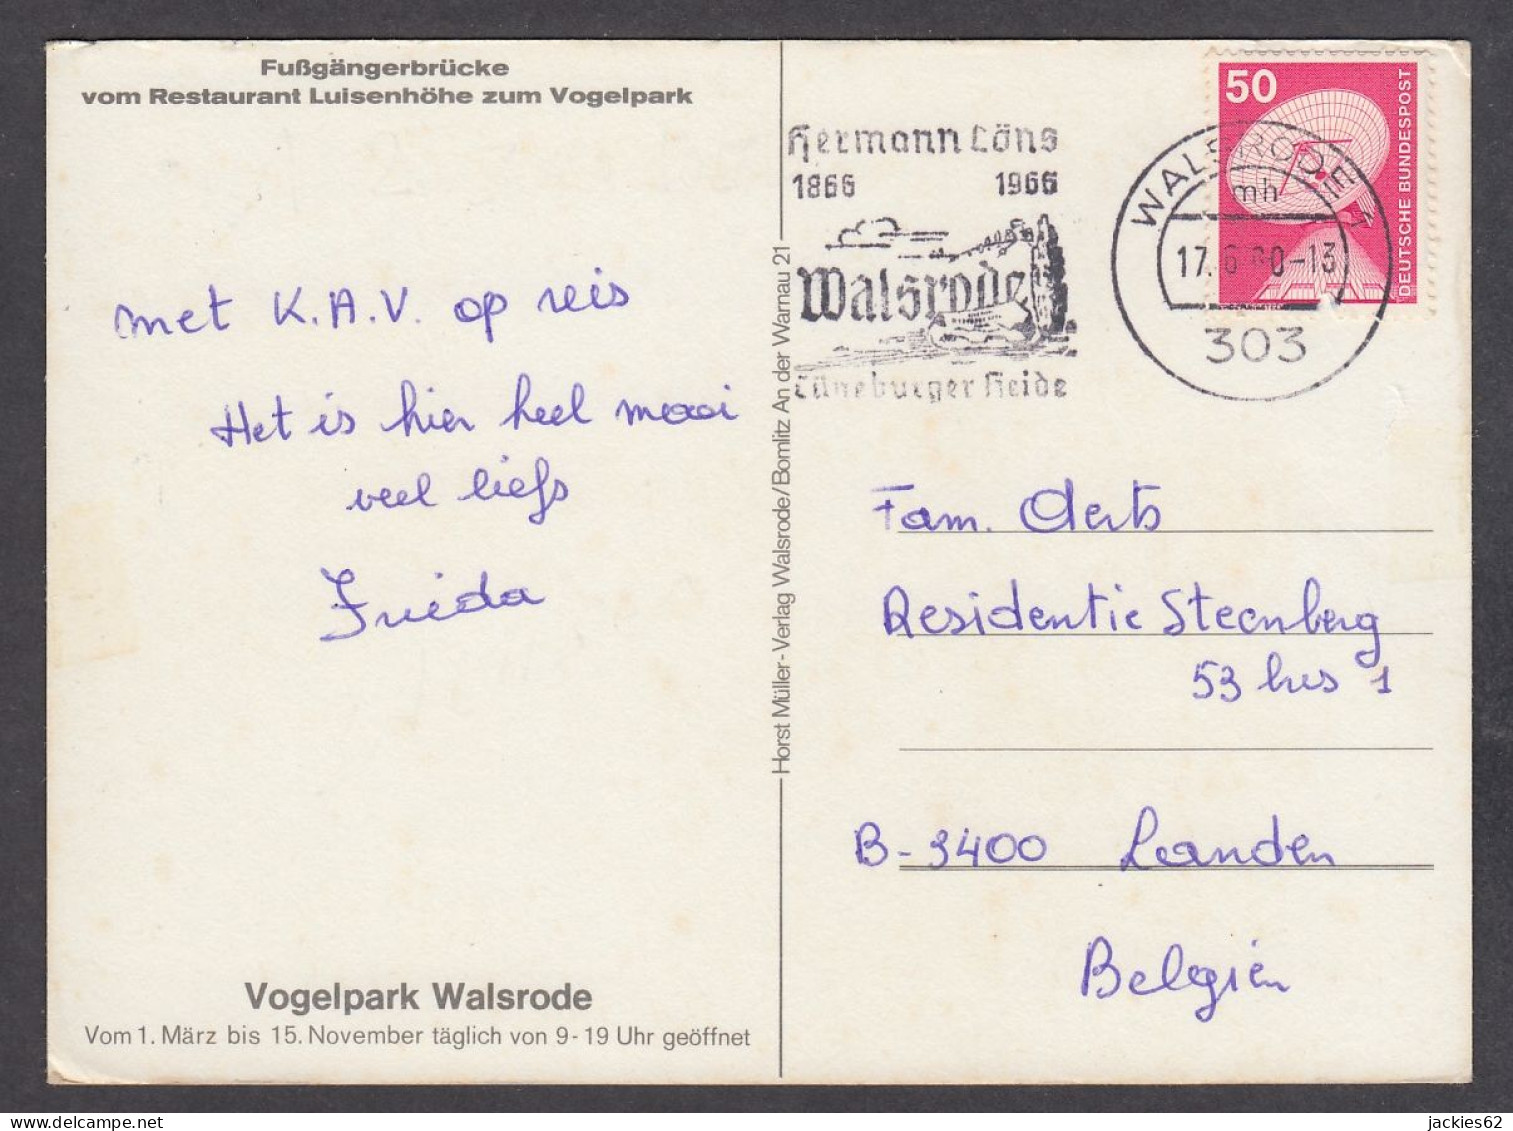 Fußgängerbrücke
vom Restaurant Luisenhöhe zum Vogelpark
met K.A.V. op reis
Het is hier heel mooi
veel liefs
Frieda
Vogelpark Walsrode
Vom 1. März bis 15. November täglich von 9-19 Uhr geöffnet
Horst Müller-Verlag Walsrode/Bomlitz An der Warnau 21
Hermann Löns
1866 1966
Walsrode
Lüneburger Heide
50
DEUTSCHE BUNDESPOST
WALSRODE 1
mh
17.6.80-13
303
Fam. Aerts
Residentie Steenberg
53 bus 1
B-3400 Landen
Belgien
jackies62